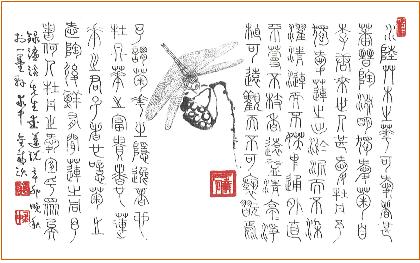 水陸艸木之華可愛者甚
蕃晉陶淵明獨愛菊自
李唐來世人甚愛牡丹予
獨愛蓮之出淤泥而不染
濯清漣而不妖中通外直
不蔓不枝香遠益清亭亭淨
植可遠觀而不可褻翫焉
予謂菊華之隱逸者也
牡丹華之富貴者也蓮
華之君子者也噫菊之
愛陶後鮮有聞蓮之愛同予
者何人牡丹之愛宜乎眾矣
錄濂溪先生愛蓮說辛卯晚秋